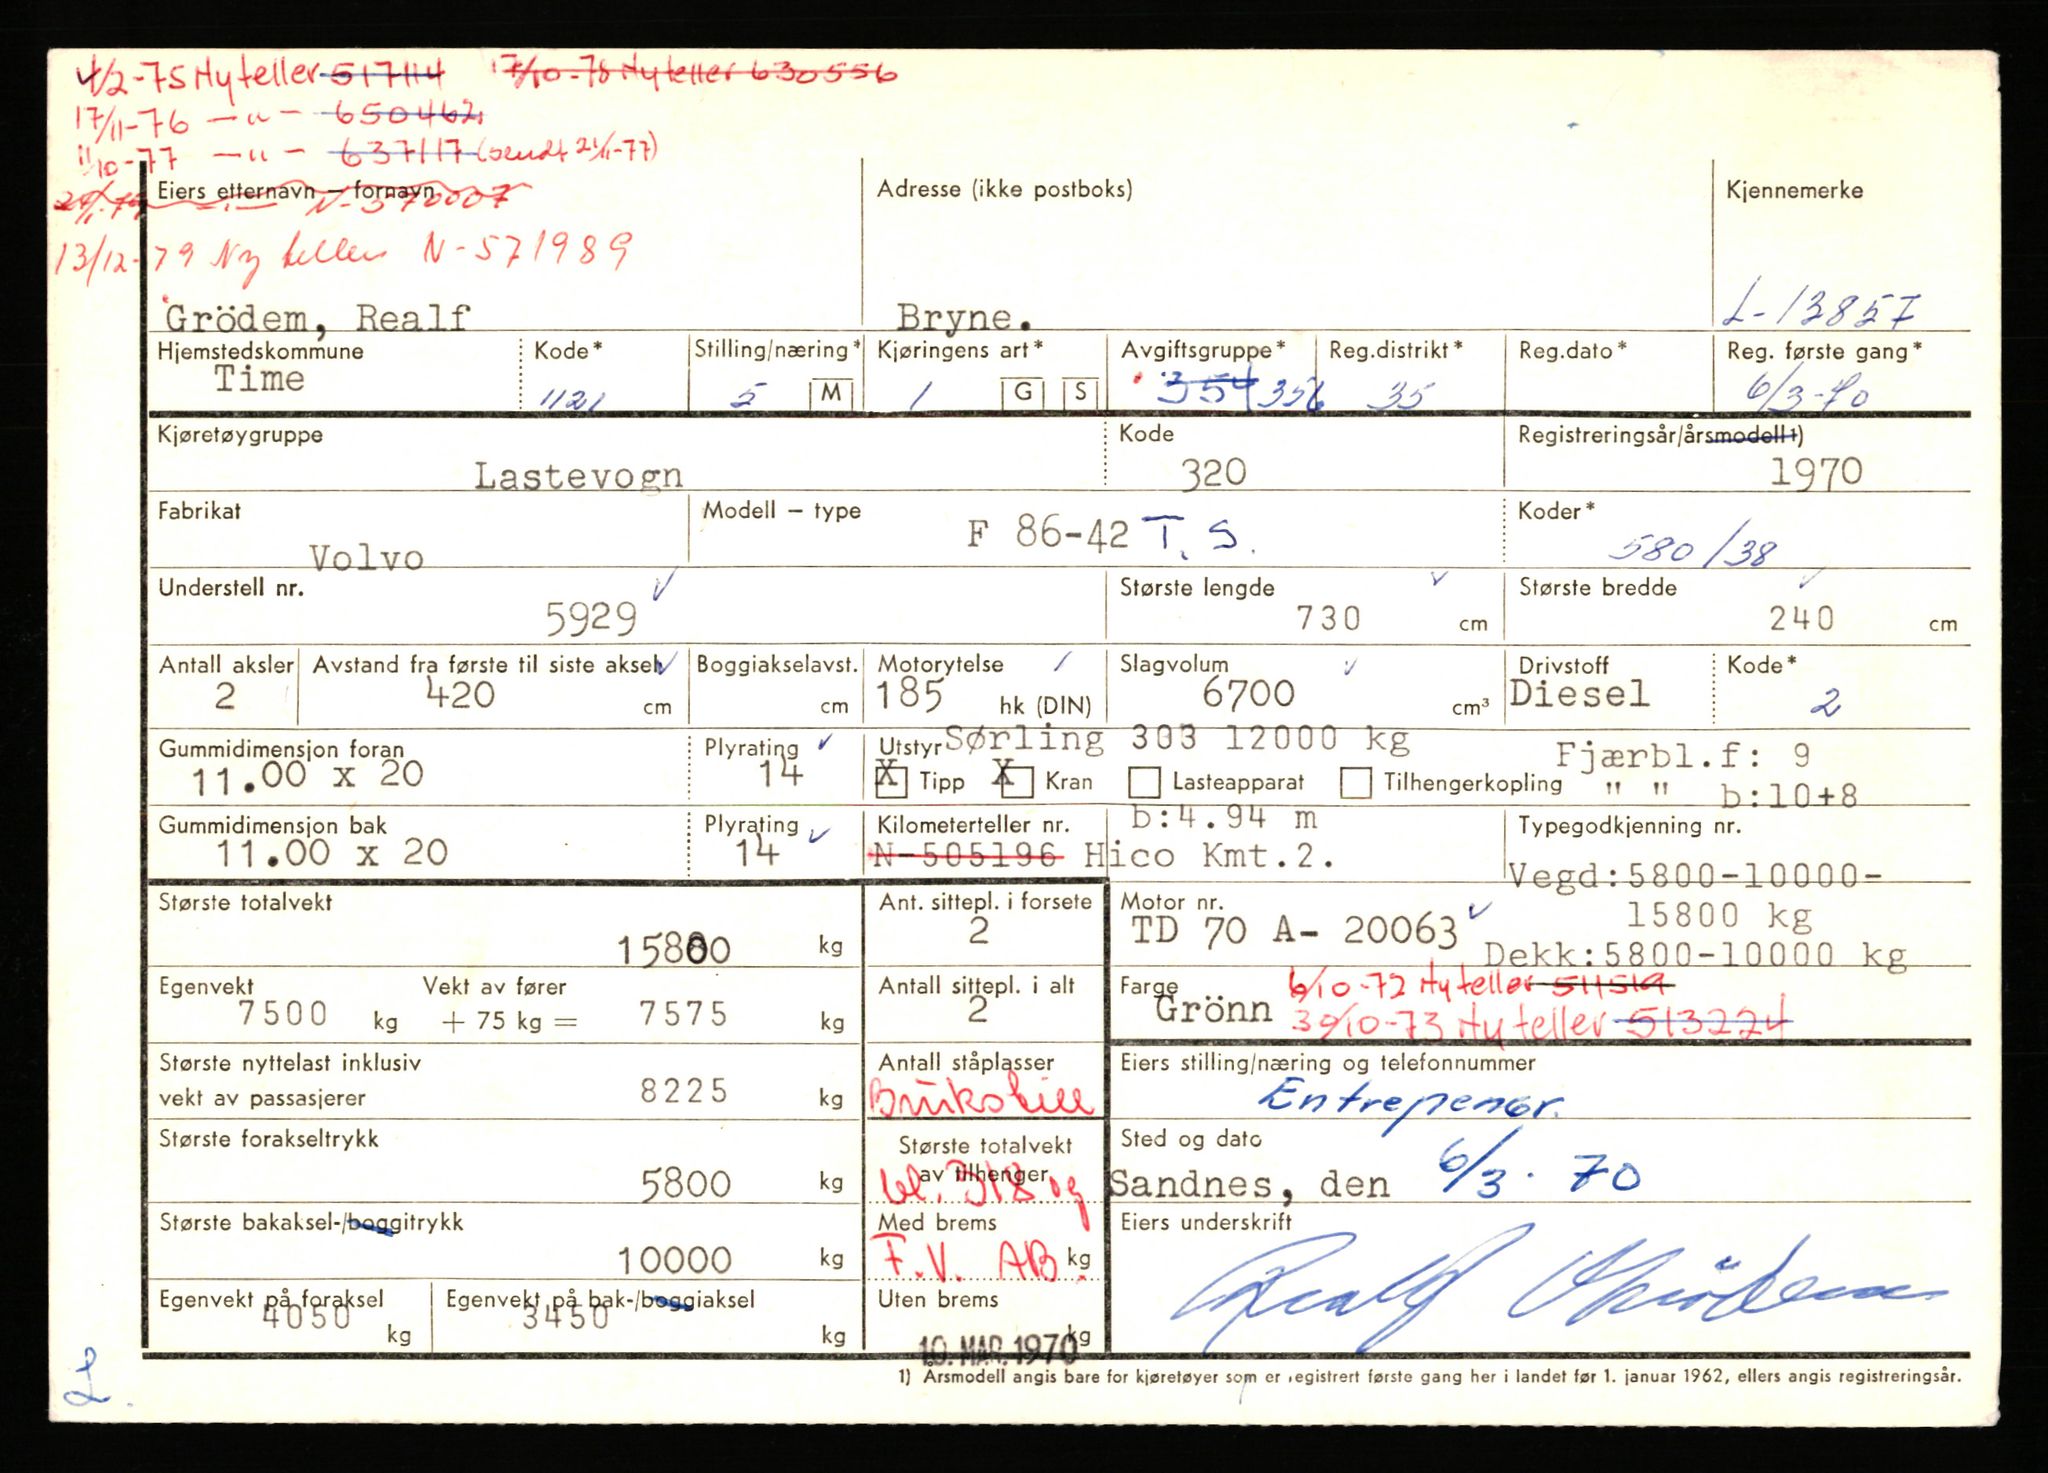 4/2-75 Ny teller 517114 17/10-78 Ny teller 630556
17/11-76 —"— 650462
11/10-77 —"— 637117 (sendt 21/11-77)
Eiers etternavn — fornavn Adresse (ikke postboks) Kjennemerke
N-570007
13/12-79 Ny teller N-571989
Grödem, Realf Bryne. L-13857
Hjemstedskommune Kode* Stilling/næring* Kjøringens art* Avgiftsgruppe* Reg.distrikt* Reg.dato* Reg. første gang*
Time 1121 5 M 1 G S 354 356 35 6/3-70
Kjøretøygruppe Kode Registreringsår/årsmodell 1)
Lastevogn 320 1970
Fabrikat Modell – type Koder*
Volvo F 86-42 T.S. 580/38
Understell nr. Største lengde Største bredde
5929 730 cm 240 cm
Antall aksler Avstand fra første til siste aksel Boggiakselavst. Motorytelse Slagvolum Drivstoff Kode*
2 420 cm cm 185 hk (DIN) 6700 cm³ Diesel 2
Gummidimensjon foran Plyrating Utstyr Sørling 303 12000 kg Fjærbl.f: 9
11.00 x 20 14 X Tipp X Kran Lasteapparat Tilhengerkopling " " b:10+8
Gummidimensjon bak Plyrating Kilometerteller nr. b:4.94 m Typegodkjenning nr.
11.00 x 20 14 N-505196 Hico Kmt.2. Vegd:5800-10000-
Største totalvekt Ant. sittepl. i forsete Motor nr. 15800 kg
15800 kg 2 TD 70 A- 20063 Dekk:5800-10000 kg
Egenvekt Vekt av fører Antall sittepl. i alt Farge 6/10-72 Ny teller 511519
7500 kg + 75 kg = 7575 kg 2 Grönn 30/10-73 Ny teller 513224
Største nyttelast inklusiv Antall ståplasser Eiers stilling/næring og telefonnummer
vekt av passasjerer 8225 kg Brukstill Entrepenør.
Største forakseltrykk Største totalvekt Sted og dato
5800 kg av tilhenger bl. 318 og Sandnes, den 6/3. 70
Største bakaksel-/boggitrykk Med brems Eiers underskrift
10000 kg F.V. AB. kg Realf Grödem
Egenvekt på foraksel Egenvekt på bak-/boggiaksel Uten brems
4050 kg 3450 kg kg
10. MAR. 1970
1) Årsmodell angis bare for kjøretøyer som er registrert første gang her i landet før 1. januar 1962, ellers angis registreringsår.
L